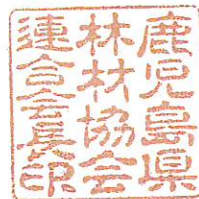 鹿児島県
林材協会
連合会長印